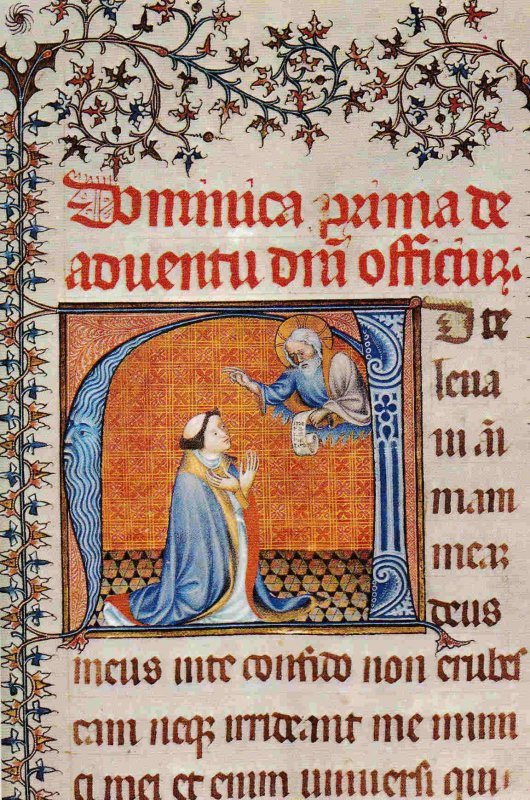 Dominica prima de
aduentu dñi officiuꝫ.
AD te
leua
ui ãi
mam
meaꝫ
deus
meus inte confido non erubes
cam neqꝫ irrideant me inimi
ci mei et enim uniuersi qui